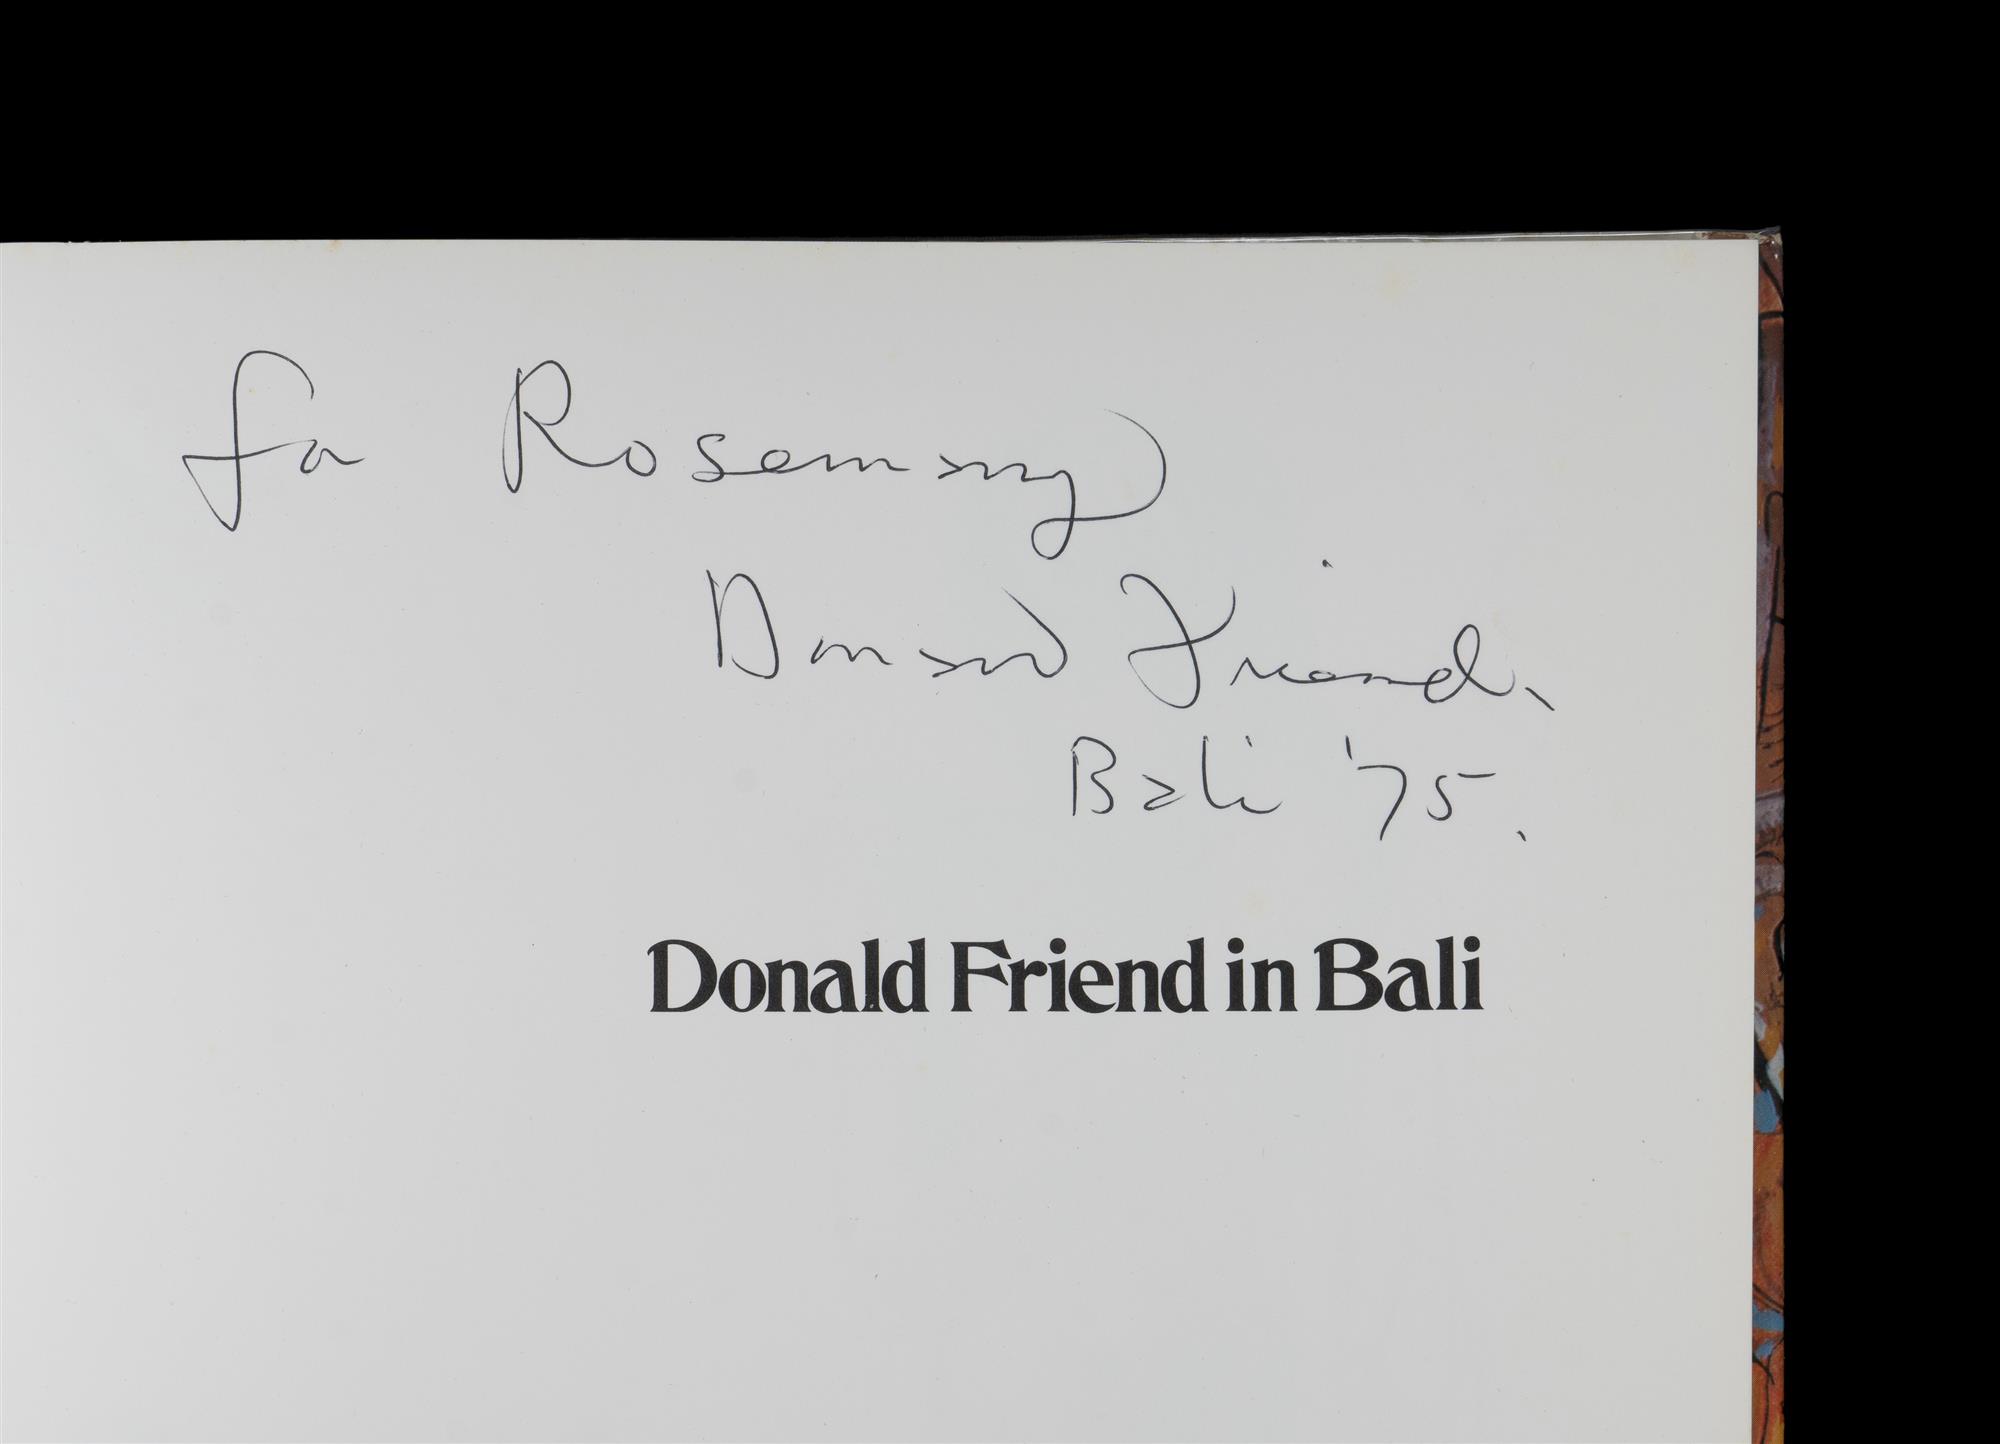 for Rosemary
Donald Friend.
Bali '75.
Donald Friend in Bali